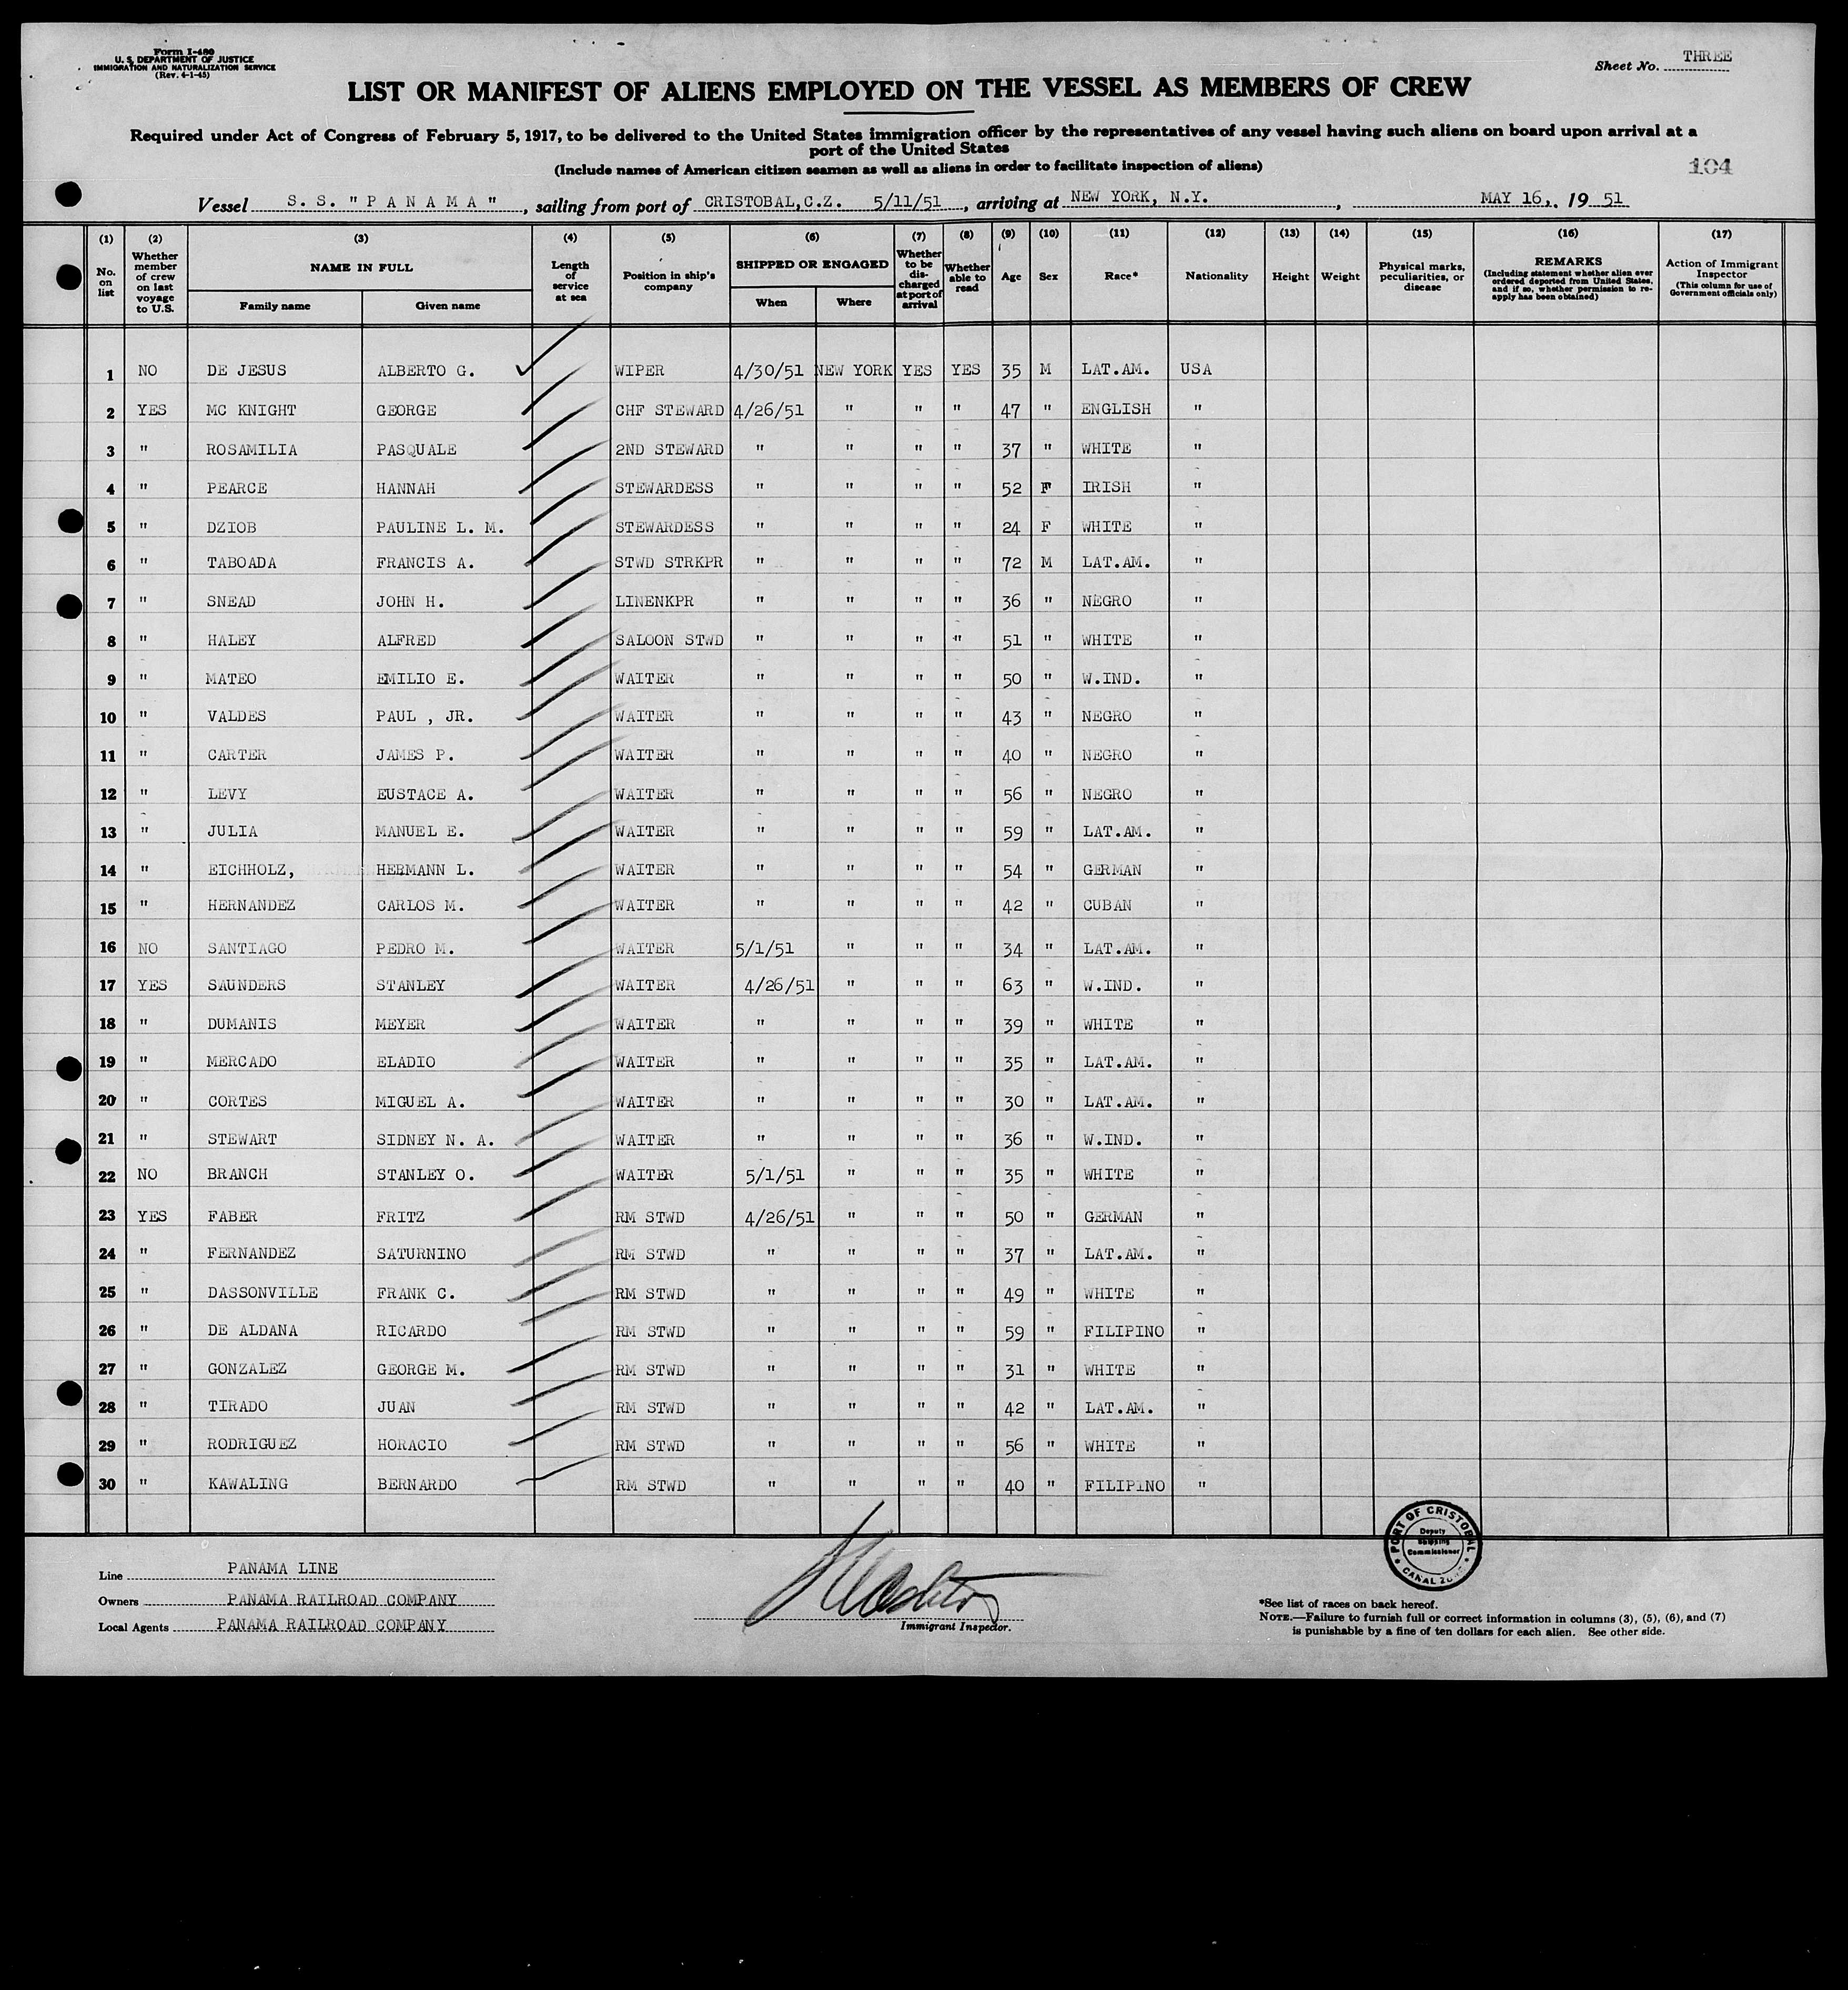 Form I-480
U. S. DEPARTMENT OF JUSTICE
IMMIGRATION AND NATURALIZATION SERVICE
(Rev. 4-1-45)
Sheet No. THREE
LIST OR MANIFEST OF ALIENS EMPLOYED ON THE VESSEL AS MEMBERS OF CREW
Required under Act of Congress of February 5, 1917, to be delivered to the United States immigration officer by the representatives of any vessel having such aliens on board upon arrival at a
port of the United States
(Include names of American citizen seamen as well as aliens in order to facilitate inspection of aliens)
104
Vessel S. S. "P A N A M A", sailing from port of CRISTOBAL,C.Z. 5/11/51, arriving at NEW YORK, N.Y., MAY 16,. 19 51
(1) (2) (3) (4) (5) (6) (7) (8) (9) (10) (11) (12) (13) (14) (15) (16) (17)
No. on list
Whether member of crew on last voyage to U.S.
NAME IN FULL
Family name Given name
Length of service at sea
Position in ship's company
SHIPPED OR ENGAGED
When Where
Whether to be discharged at port of arrival
Whether able to read
Age Sex Race* Nationality Height Weight
Physical marks, peculiarities, or disease
REMARKS
(Including statement whether alien ever ordered deported from United States, and if so, whether permission to re-apply has been obtained)
Action of Immigrant Inspector
(This column for use of Government officials only)
1 NO DE JESUS ALBERTO G. WIPER 4/30/51 NEW YORK YES YES 35 M LAT.AM. USA
2 YES MC KNIGHT GEORGE CHF STEWARD 4/26/51 " " " 47 " ENGLISH "
3 " ROSAMILIA PASQUALE 2ND STEWARD " " " " 37 " WHITE "
4 " PEARCE HANNAH STEWARDESS " " " " 52 F IRISH "
5 " DZIOB PAULINE L. M. STEWARDESS " " " " 24 F WHITE "
6 " TABOADA FRANCIS A. STWD STRKPR " " " " 72 M LAT.AM. "
7 " SNEAD JOHN H. LINENKPR " " " " 36 " NEGRO "
8 " HALEY ALFRED SALOON STWD " " " " 51 " WHITE "
9 " MATEO EMILIO E. WAITER " " " " 50 " W.IND. "
10 " VALDES PAUL , JR. WAITER " " " " 43 " NEGRO "
11 " CARTER JAMES P. WAITER " " " " 40 " NEGRO "
12 " LEVY EUSTACE A. WAITER " " " " 56 " NEGRO "
13 " JULIA MANUEL E. WAITER " " " " 59 " LAT.AM. "
14 " EICHHOLZ, HERMANN L. WAITER " " " " 54 " GERMAN "
15 " HERNANDEZ CARLOS M. WAITER " " " " 42 " CUBAN "
16 NO SANTIAGO PEDRO M. WAITER 5/1/51 " " " 34 " LAT.AM. "
17 YES SAUNDERS STANLEY WAITER 4/26/51 " " " 63 " W.IND. "
18 " DUMANIS MEYER WAITER " " " " 39 " WHITE "
19 " MERCADO ELADIO WAITER " " " " 35 " LAT.AM. "
20 " CORTES MIGUEL A. WAITER " " " " 30 " LAT.AM. "
21 " STEWART SIDNEY N. A. WAITER " " " " 36 " W.IND. "
22 NO BRANCH STANLEY O. WAITER 5/1/51 " " " 35 " WHITE "
23 YES FABER FRITZ RM STWD 4/26/51 " " " 50 " GERMAN "
24 " FERNANDEZ SATURNINO RM STWD " " " " 37 " LAT.AM. "
25 " DASSONVILLE FRANK C. RM STWD " " " " 49 " WHITE "
26 " DE ALDANA RICARDO RM STWD " " " " 59 " FILIPINO "
27 " GONZALEZ GEORGE M. RM STWD " " " " 31 " WHITE "
28 " TIRADO JUAN RM STWD " " " " 42 " LAT.AM. "
29 " RODRIGUEZ HORACIO RM STWD " " " " 56 " WHITE "
30 " KAWALING BERNARDO RM STWD " " " " 40 " FILIPINO "
PORT OF CRISTOBAL
Deputy
Shipping
Commissioner
CANAL ZONE
Line PANAMA LINE
Owners PANAMA RAILROAD COMPANY
Local Agents PANAMA RAILROAD COMPANY
Immigrant Inspector.
*See list of races on back hereof.
NOTE.—Failure to furnish full or correct information in columns (3), (5), (6), and (7)
is punishable by a fine of ten dollars for each alien. See other side.